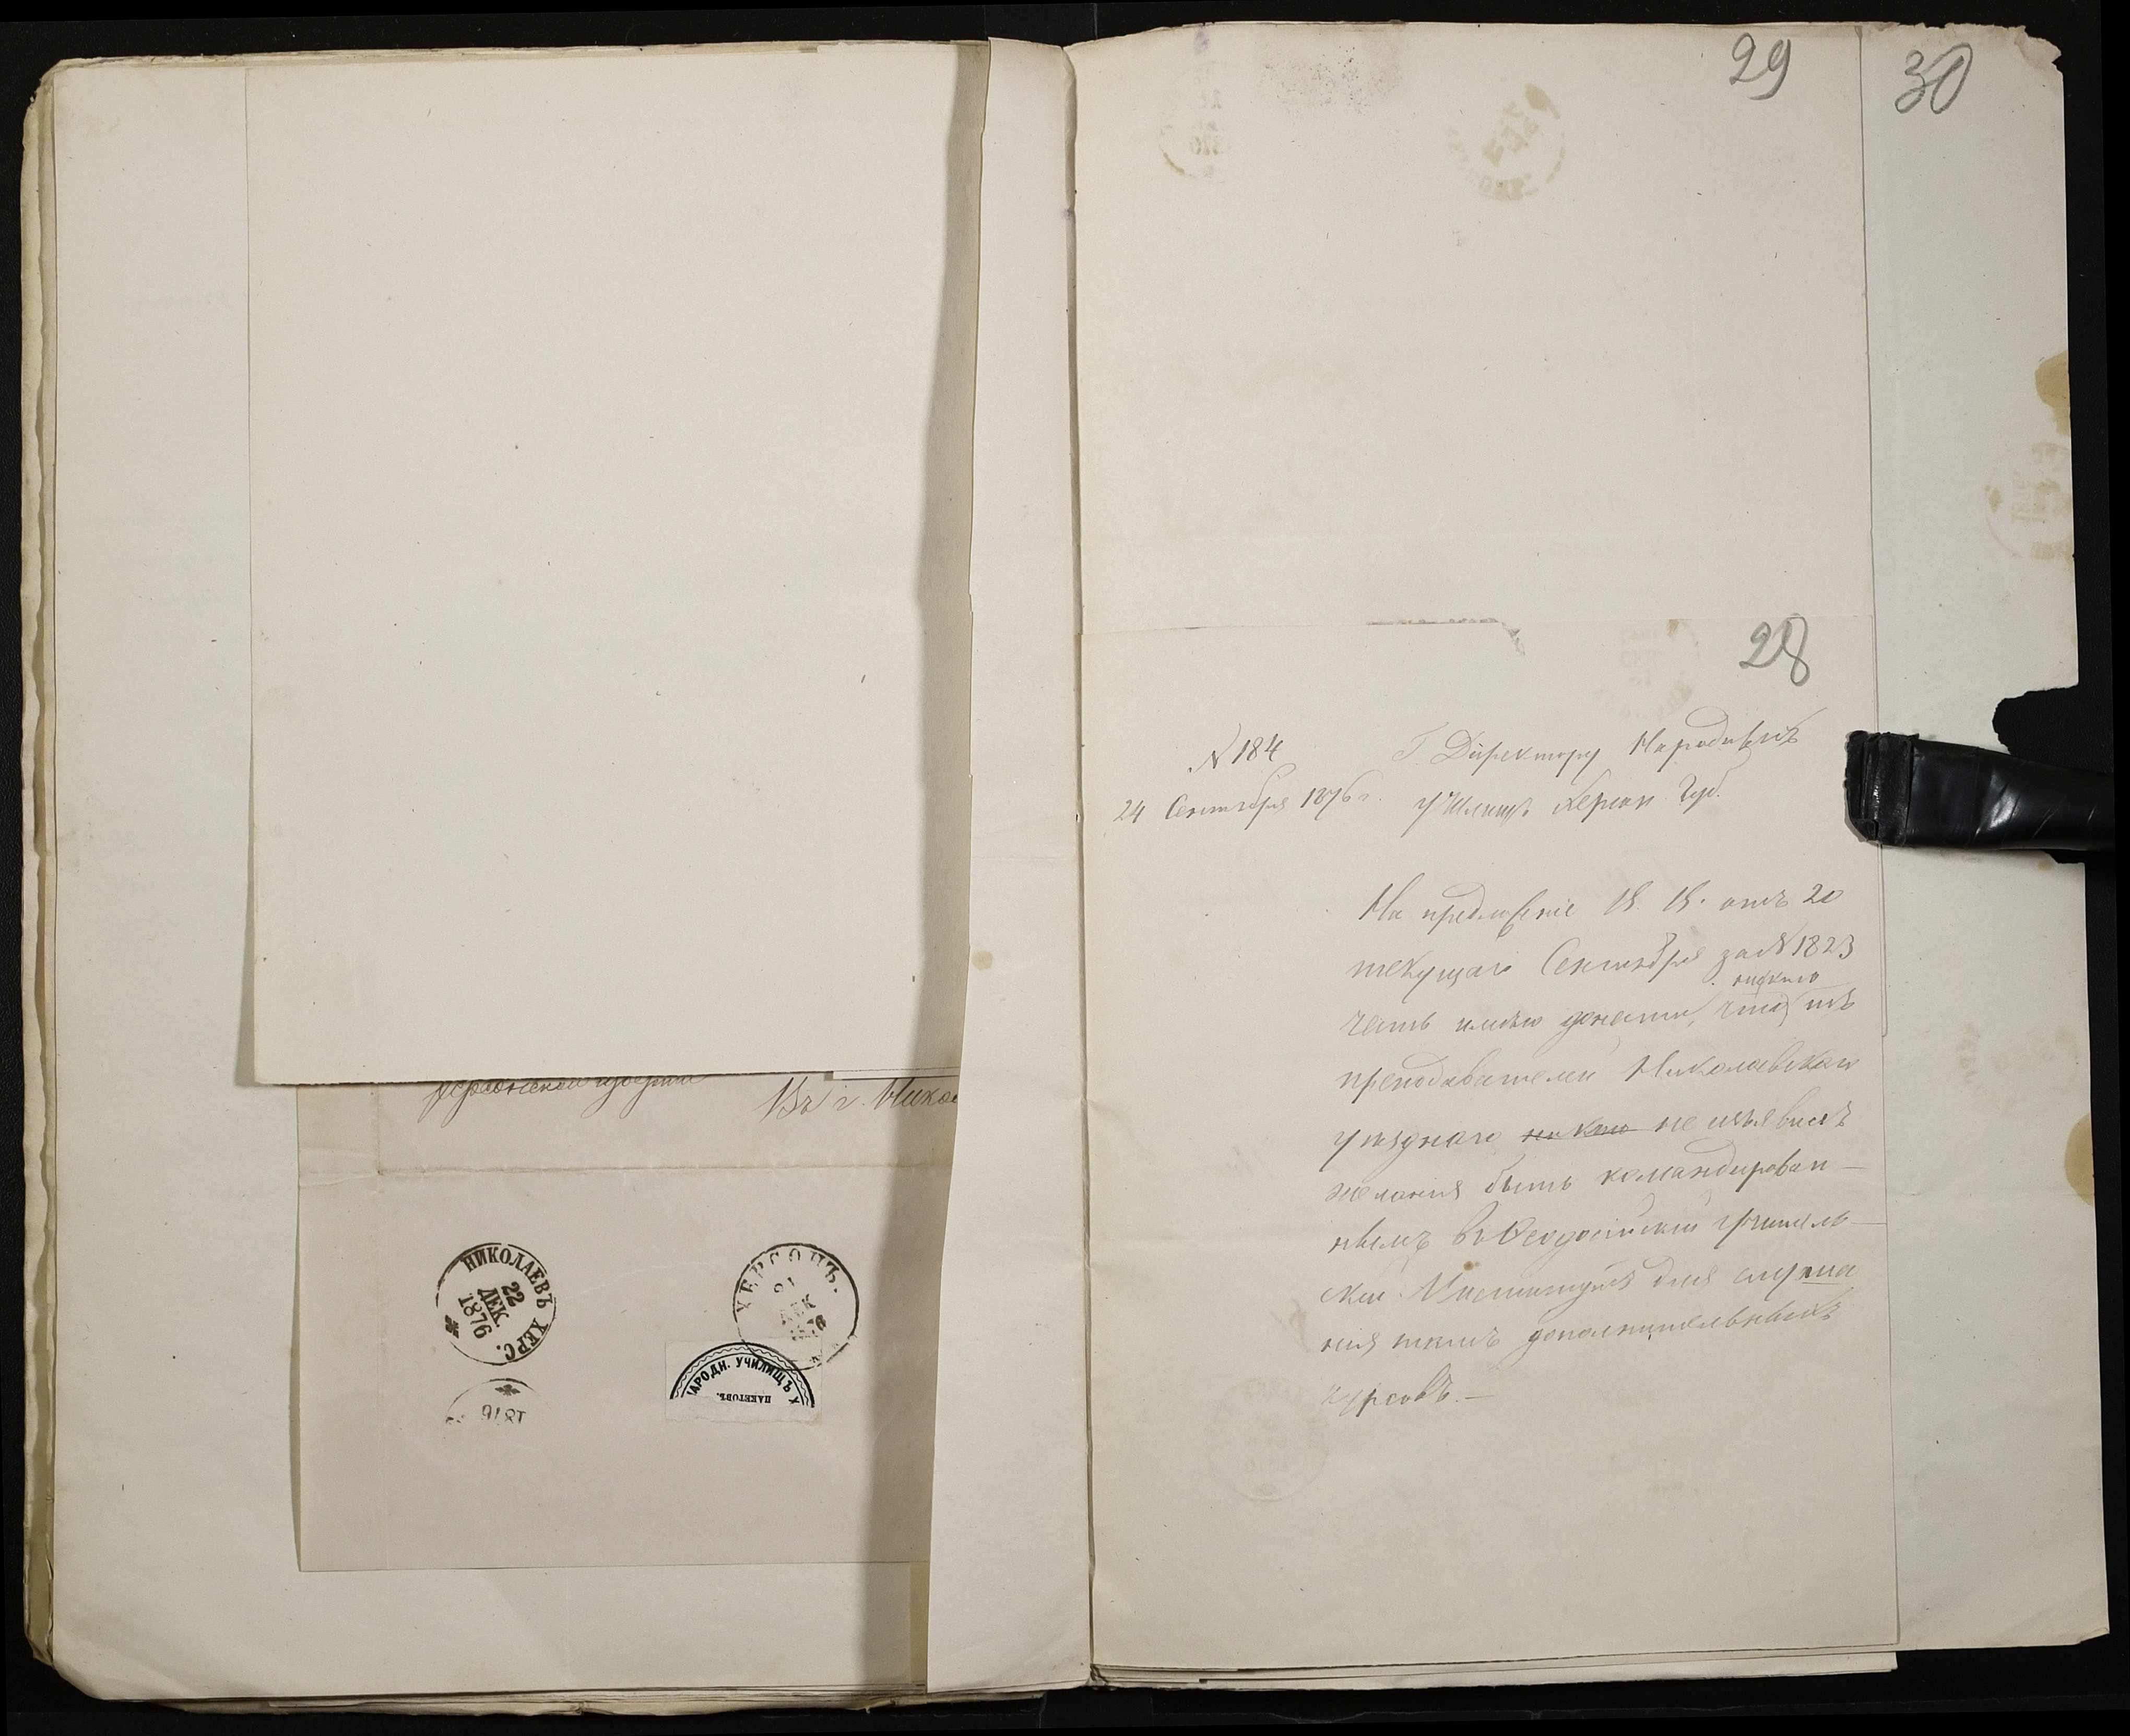 29
30
28
N 184
Г. Директору Народныхъ
24 Сентября 1876 г.
училищъ Херсон. Губ.
На предложеніе В. В. отъ 20
текущаго Сентября за N 1823
никто
честь имѣю донести, что изъ
преподавателей Николаевскаго
уѣзднаго никто не изъявилъ
желанія быть командирован-
нымъ въ Ѳеодосійскій учитель-
скій Институтъ для слуша
нія тамъ дополнительныхъ
курсовъ.—
Херсонской губерніи
Въ г. Никол
НИКОЛАЕВЪ ХЕРС.
22
ДЕК.
1876
ХЕРСОНЪ.
НАРОДН. УЧИЛИЩЪ Х
ПАКЕТОВЪ.
1876